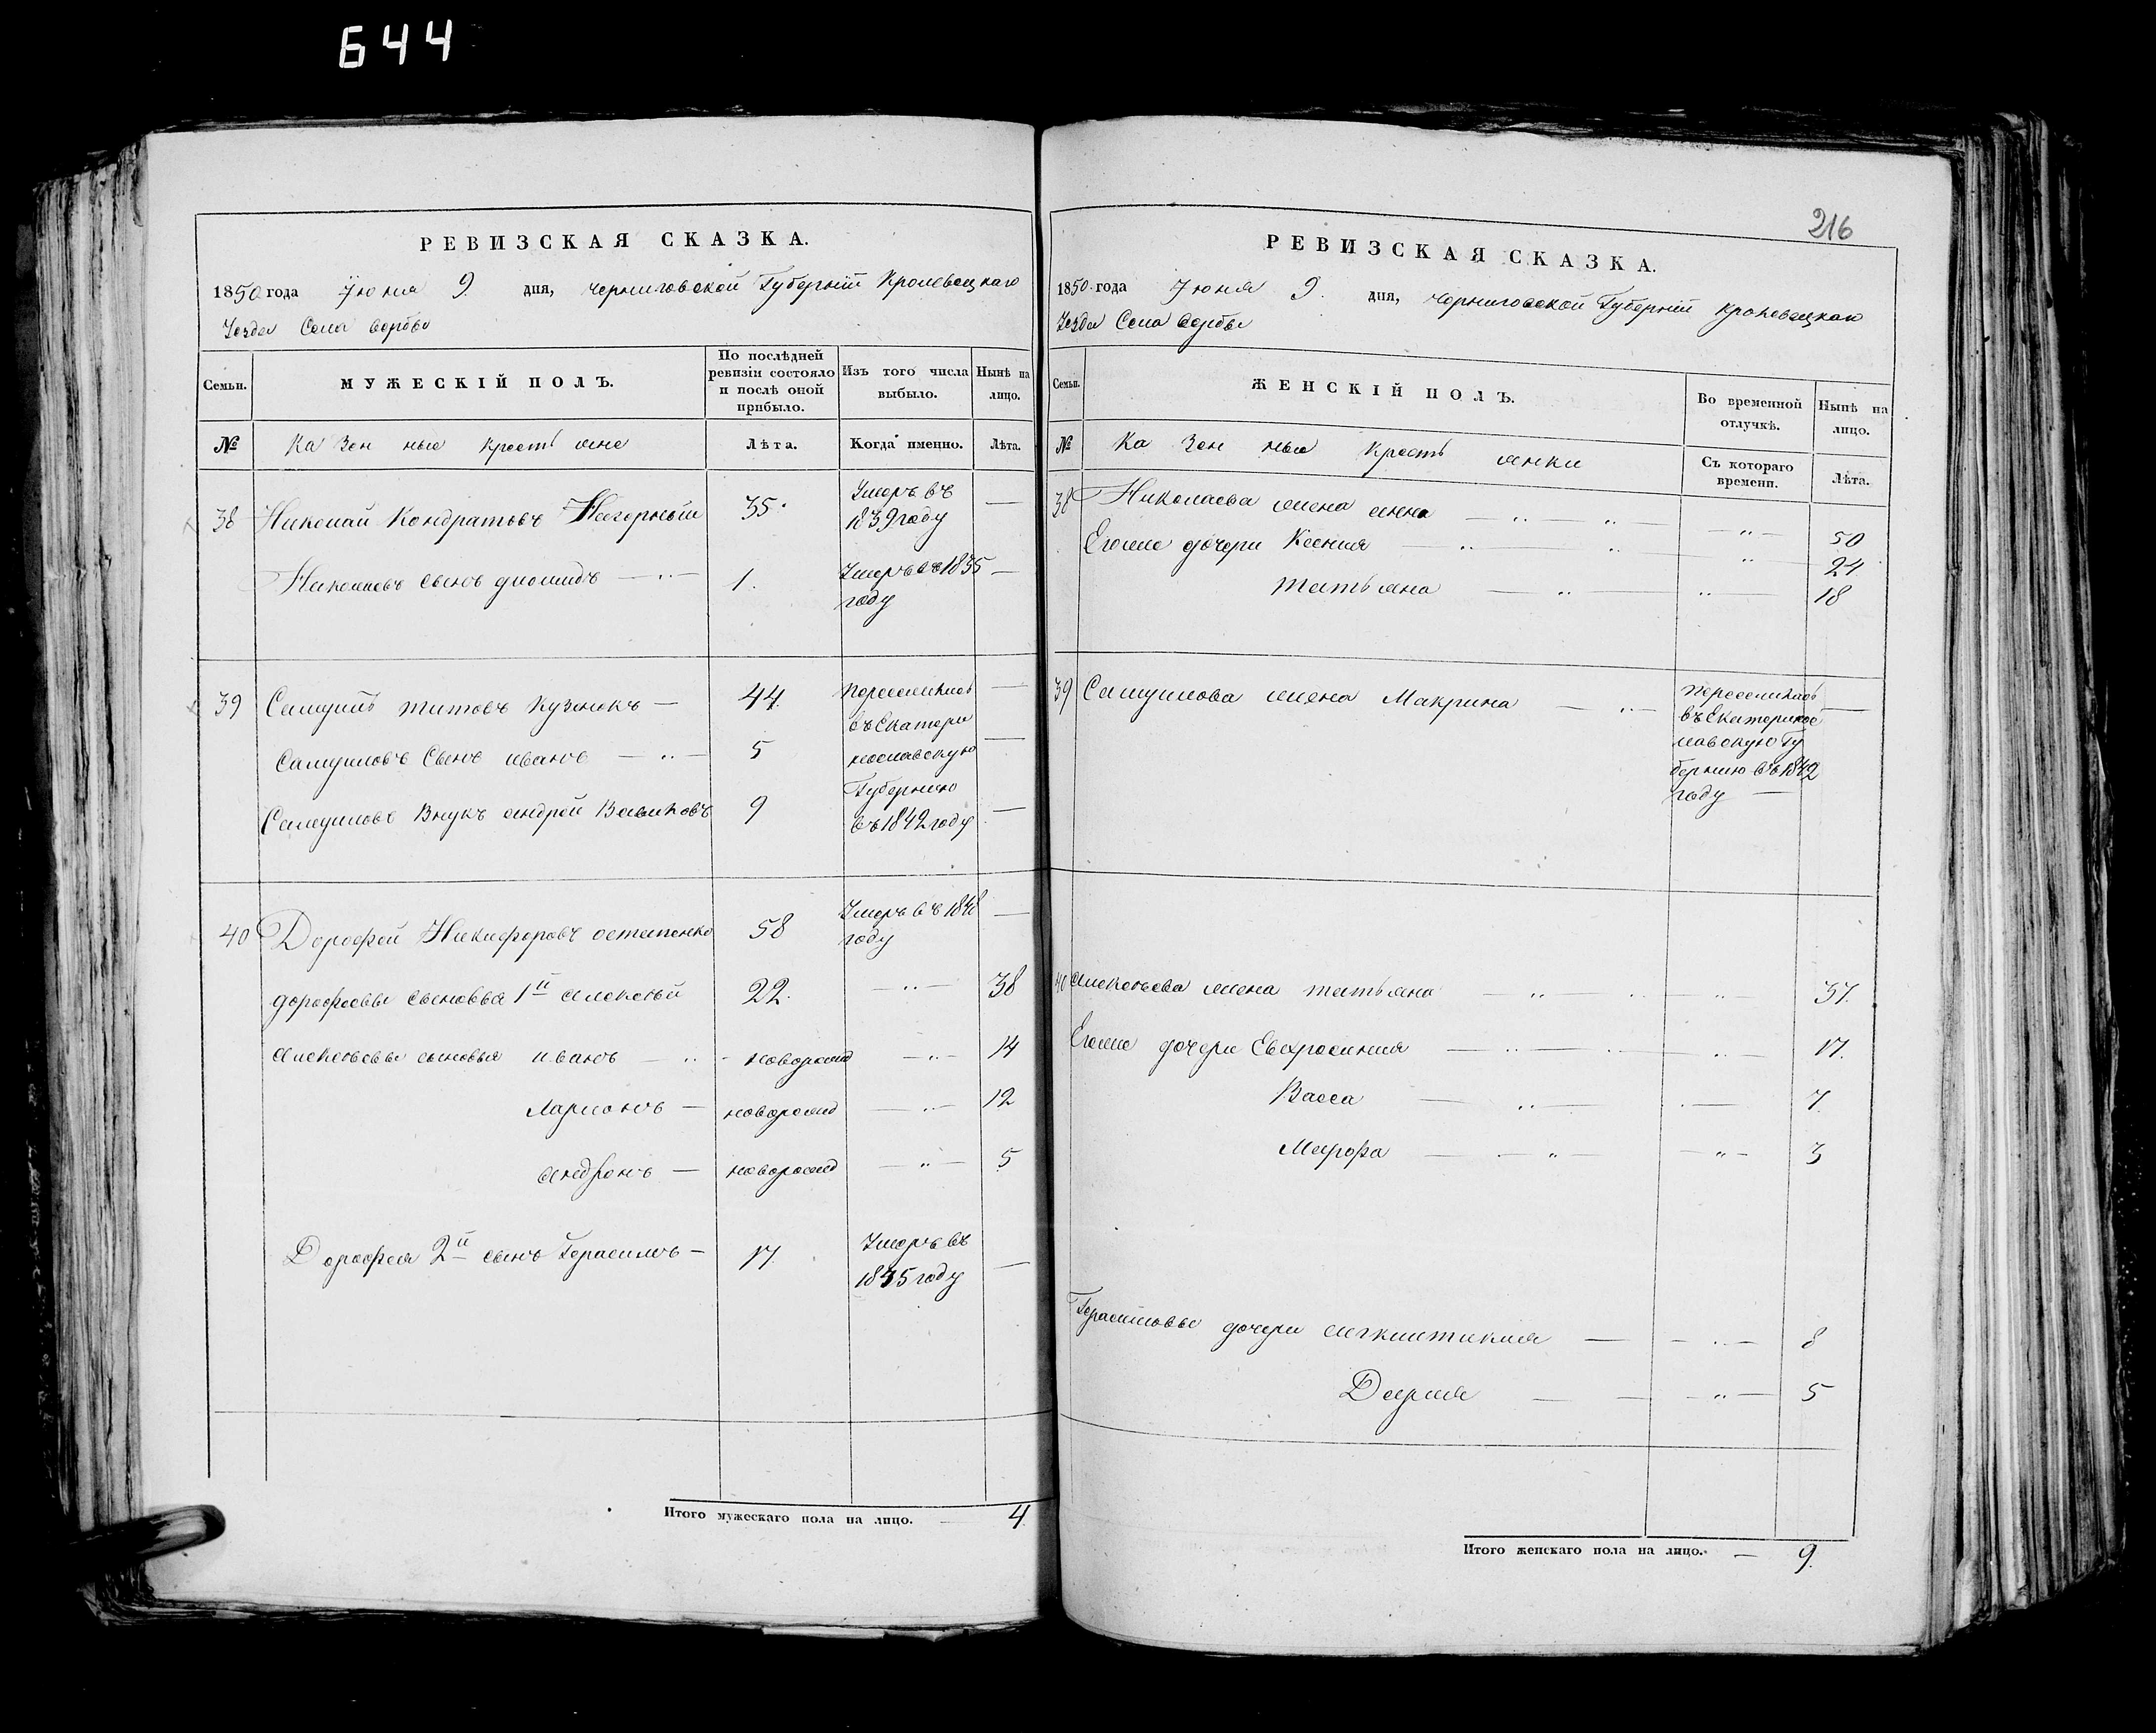 644
РЕВИЗСКАЯ СКАЗКА.
1850 года Июня 9. дня, черниговской Губерніи Кролевецкаго
Уезда Села вербы
Семьи. МУЖЕСКІЙ ПОЛЪ. По послѣдней ревизіи состояло и послѣ оной прибыло. Изъ того числа выбыло. Нынѣ на лицо.
№ Ка зен ные крестьяне Лѣта. Когда именно. Лѣта.
38 Николай Кондратовъ Нагорный 35. Умеръ въ 1839 году —
Николаевъ сынъ диомидъ — 1. Умеръ въ 1835 году —
39 Самуилъ титовъ кузнокъ — 44. переселились въ Екатери нославскую Губернию въ 1842 году —
Самуиловъ Сынъ иванъ — 5 —
Самуиловъ Внукъ андрей Вавиловъ 9 —
40 Дорофей Никифоровъ остапенко 58 Умеръ въ 1848 году —
дорофеевы сыновья 1й алексѣй 22. — 38
алексѣевы сыновья иванъ — новорожд — 14
Ларионъ — новорожд — 12
андронъ — новорожд — 5
Дорофея 2й сынъ Герасимъ — 17. Умеръ въ 1845 году —
Итого мужескаго пола на лицо. — 4
216
РЕВИЗСКАЯ СКАЗКА.
1850 года Июня 9. дня, черниговской Губерніи кролевецкаго
Уезда Села вербы
Семьи. ЖЕНСКІЙ ПОЛЪ. Во временной отлучкѣ. Нынѣ на лицо.
№ Ка зен ные крестьянки Съ котораго времени. Лѣта.
38 Николаева жена анна — 50
Егоже дочери Ксения — 24
татьяна — 18
39 Самуилова жена Макрина — переселилась въ Екатеринос лавскую Гу бернию въ 1842 году —
40 алексѣева жена татьяна — 37.
Егоже дочери Евфросиния — 17.
Васса — 7.
Марфа — 3
Герасимовы дочери — 8
Дария — 5
Итого женскаго пола на лицо. — 9.